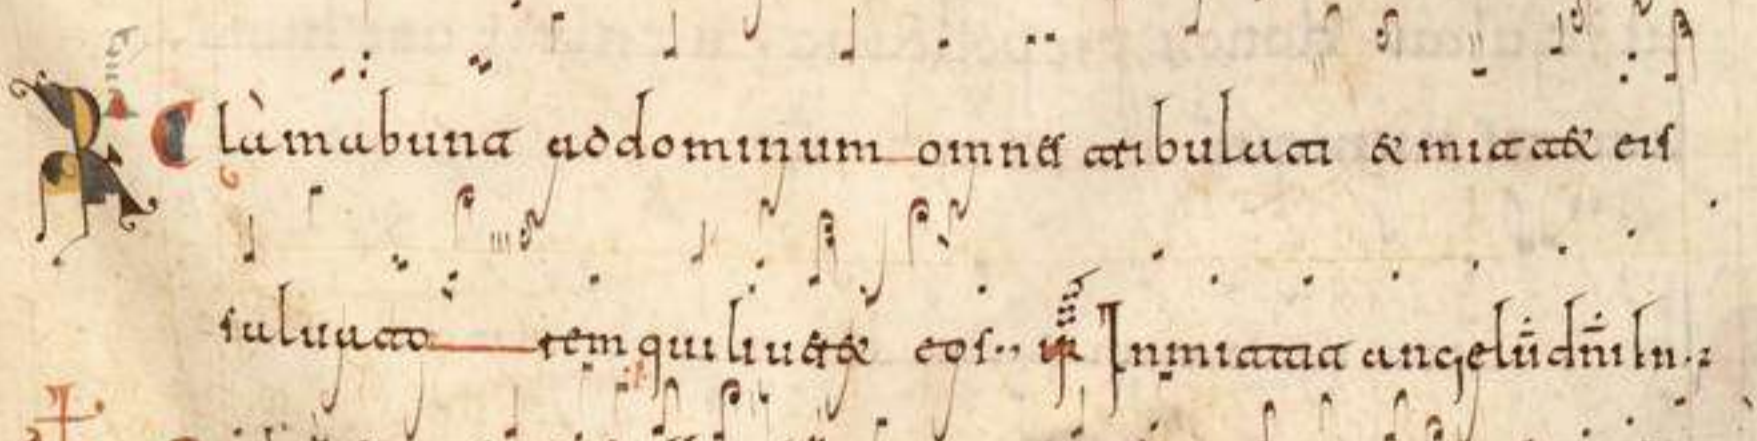 R Clamabunt ad dominum omnes tribulati & mittet eis
saluato rem qui liueret eos·· ℣ Inmittit angelū dn̄i In·: